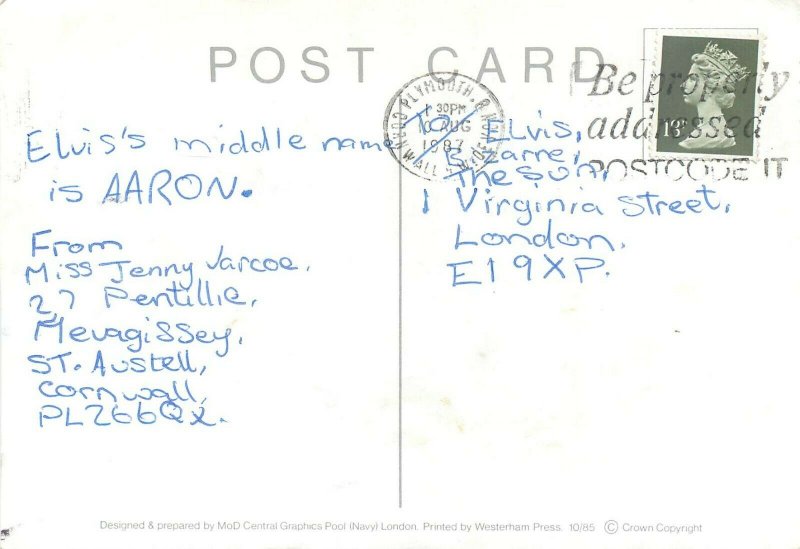 POST CARD
Elvis's middle name
is AARON.
From
Miss Jenny Varcoe,
27 Pentillie,
Mevagissey,
ST. Austell,
Cornwall,
PL266QX.
To/ Elvis,
The Sun,
1 Virginia Street,
London,
E1 9XP.
PLYMOUTH
1 30PM
10 AUG
1987
CORNWALL
Be properly
addressed
POSTCODE IT
18
Designed & prepared by MoD Central Graphics Pool (Navy) London. Printed by Westerham Press. 10/85 © Crown Copyright